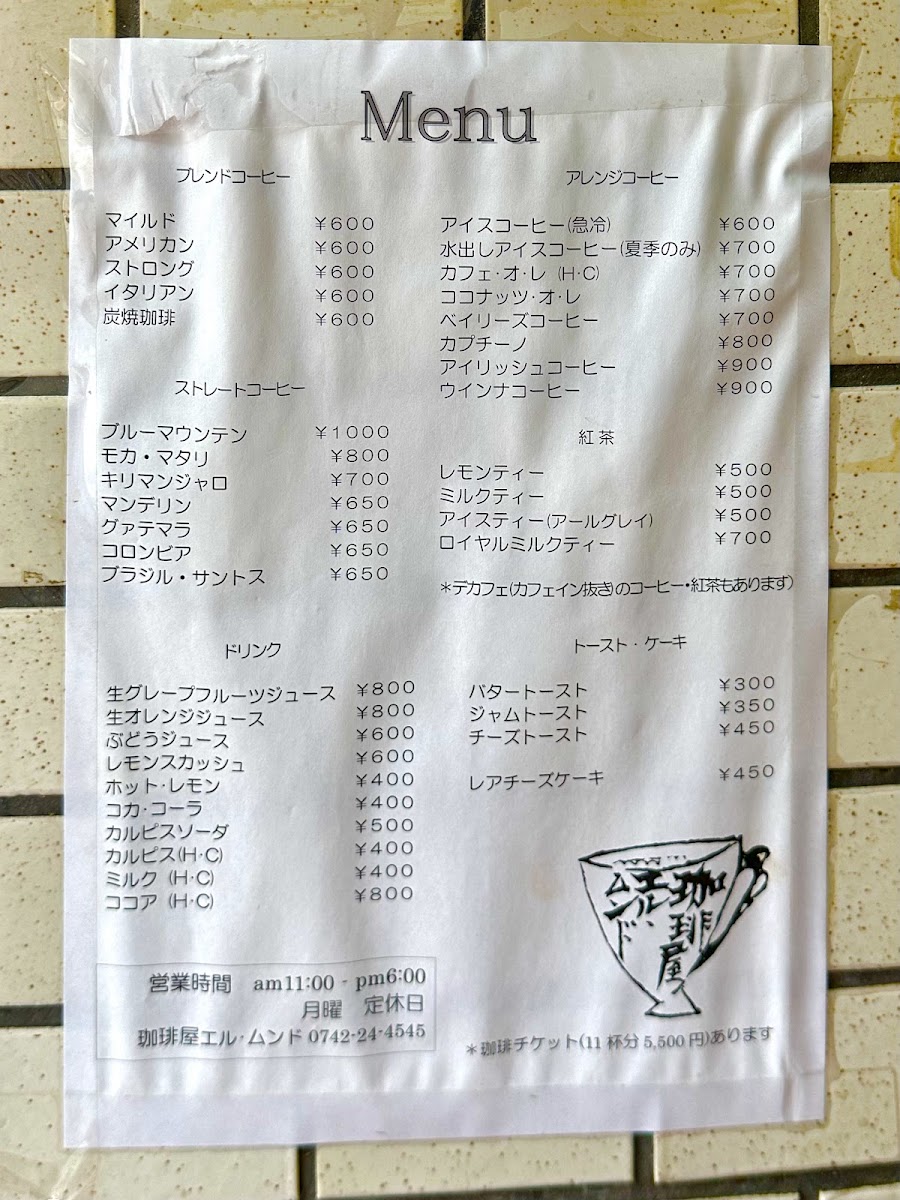 Menu
ブレンドコーヒー
マイルド ¥600
アメリカン ¥600
ストロング ¥600
イタリアン ¥600
炭焼珈琲 ¥600
ストレートコーヒー
ブルーマウンテン ¥1000
モカ・マタリ ¥800
キリマンジャロ ¥700
マンデリン ¥650
グァテマラ ¥650
コロンビア ¥650
ブラジル・サントス ¥650
ドリンク
生グレープフルーツジュース ¥800
生オレンジジュース ¥800
ぶどうジュース ¥600
レモンスカッシュ ¥600
ホット・レモン ¥400
コカ・コーラ ¥400
カルピスソーダ ¥500
カルピス(H・C) ¥400
ミルク (H・C) ¥400
ココア (H・C) ¥800
営業時間 am11:00 - pm6:00
月曜 定休日
珈琲屋エル・ムンド 0742-24-4545
アレンジコーヒー
アイスコーヒー(急冷) ¥600
水出しアイスコーヒー(夏季のみ) ¥700
カフェ・オ・レ (H・C) ¥700
ココナッツ・オ・レ ¥700
ベイリーズコーヒー ¥700
カプチーノ ¥800
アイリッシュコーヒー ¥900
ウインナコーヒー ¥900
紅茶
レモンティー ¥500
ミルクティー ¥500
アイスティー(アールグレイ) ¥500
ロイヤルミルクティー ¥700
*デカフェ(カフェイン抜き)のコーヒー・紅茶もあります)
トースト・ケーキ
バタートースト ¥300
ジャムトースト ¥350
チーズトースト ¥450
レアチーズケーキ ¥450
珈琲屋
エル・
ムンド
*珈琲チケット(11杯分5,500円)あります